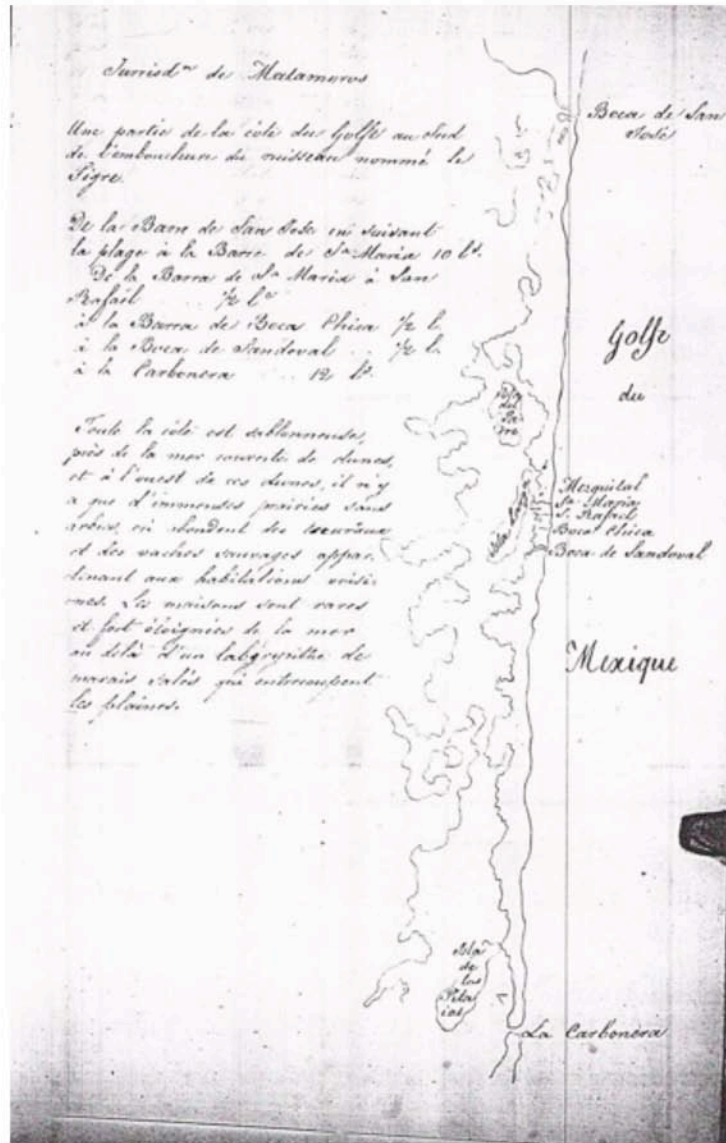 Jurisd^on de Matamoros
Une partie de la côte du Golfe au Sud
de l'embouchure du ruisseau nommé le
Tigre.
De la Barre de San Jose en suivant
la plage à la Barre de S^ta Maria 10 l^s.
De la Barra de S^ta Maria à San
Rafaël .... ½ l^e
à la Barra de Boca Chica ½ l.
à la Boca de Sandoval .. ½ l.
à la Carbonera ... 12 l^s.
Toute la côte est sablonneuse,
près de la mer couverte de dunes,
et à l'ouest de ces dunes, il n'y
a que d'immenses prairies sans
arbres, où abondent des chevreaux
et des vaches sauvages appar-
tenant aux habitations voisi-
nes. Les maisons sont rares
et fort éloignées de la mer
au delà d'un labyrynthe de
marais salés qui entrecoupent
les plaines.
Boca de San
José
Golfe
du
Mexique
Isla
Isla Larga
Mezquital
S^ta Maria
S. Rafaël
Boca Chica
Boca de Sandoval
Isla
de
los
Pita
ias
La Carbonera